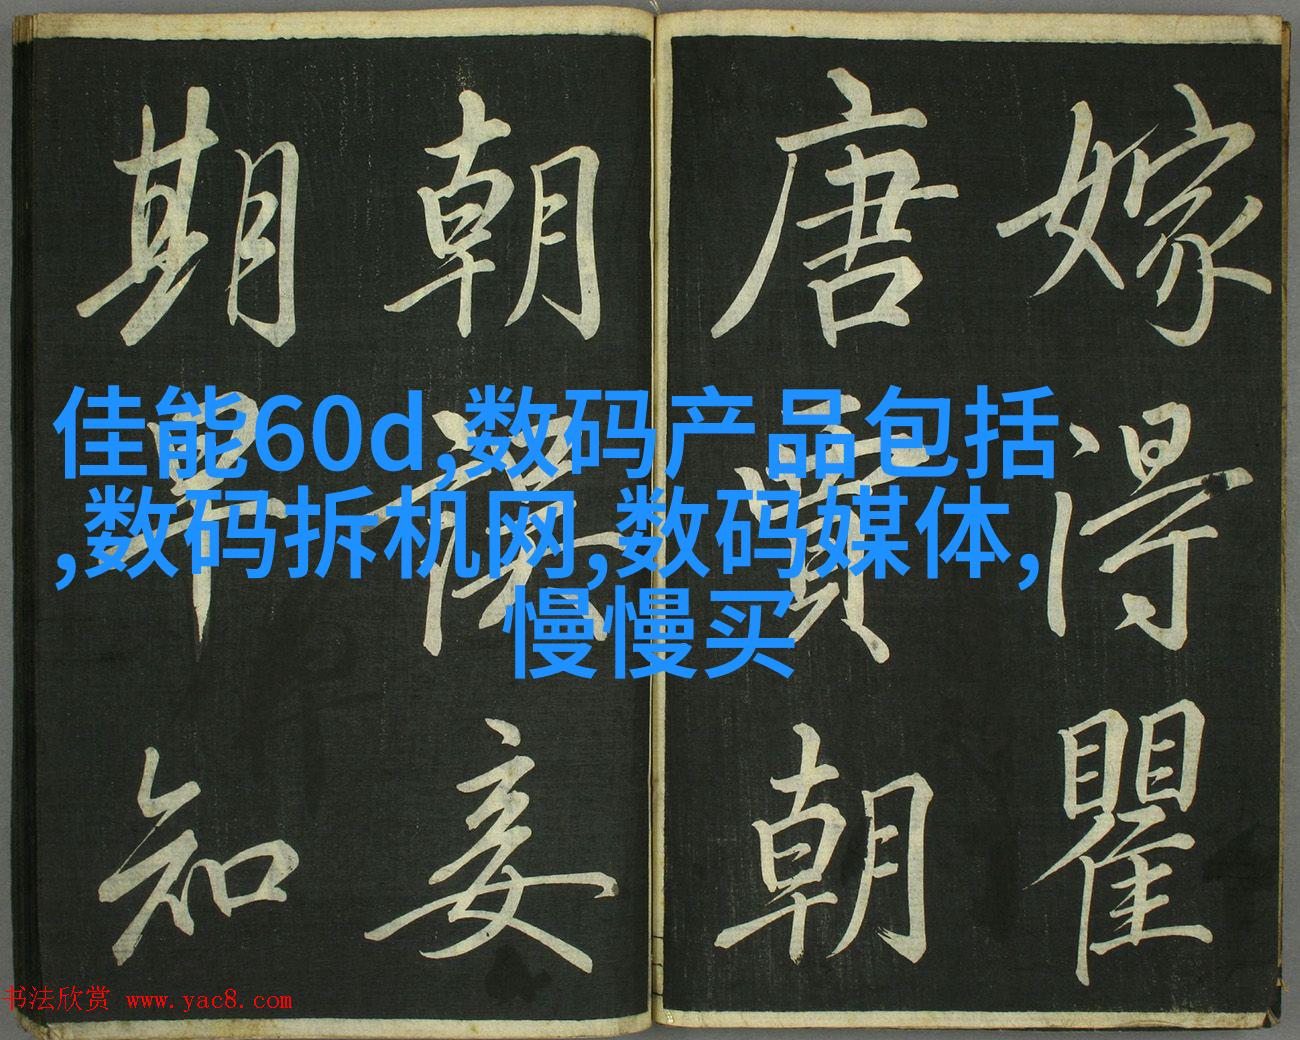 嫁得瞿
唐賈朝
朝誤妾
期早知
佳能60d,数码产品包括
,数码拆机网,数码媒体,
慢慢买
书法欣赏 www.yac8.com